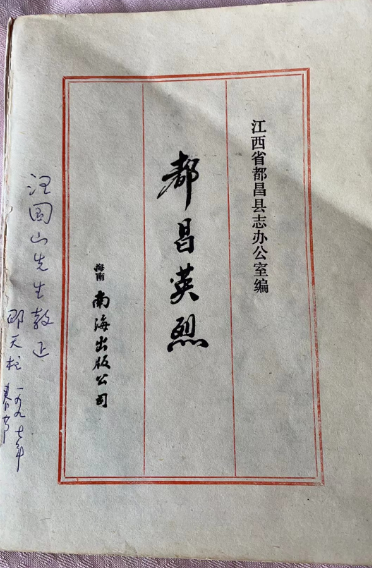 江西省都昌县志办公室编
都昌英烈
海南 南海出版公司
汪国山先生教正
邵天柱 一九九七年春节